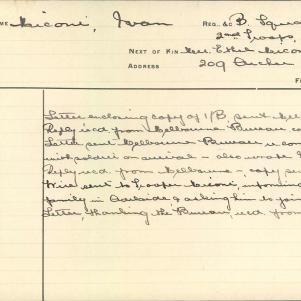 NAME Miconi, Ivan REG., &C B. Squa
2nd Troop,
NEXT OF KIN Mrs. Ethel Micon
ADDRESS 209 Archer
Letter enclosing copy of 1/B, sent Mel
Reply recd. from Melbourne Bureau co
Letter sent Melbourne Bureau
with soldier on arrival - also wrote
Reply recd. from Melbourne -, copy sen
Wire sent to Trooper Miconi, informing
family in Adelaide & asking him to join
Letter, thanking the Bureau, recd. from